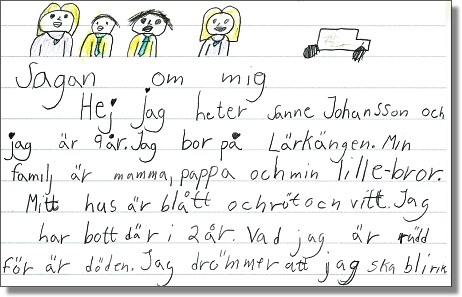 Sagan om mig
Hej jag heter Sanne Johansson och
jag är 9 år. Jag bor på Lärkängen. Min
familj är mamma, pappa och min lille-bror.
Mitt hus är blått och röt och vitt. Jag
har bott där i 2 år. Vad jag är rädd
för är döden. Jag drömmer att jag ska bli rik